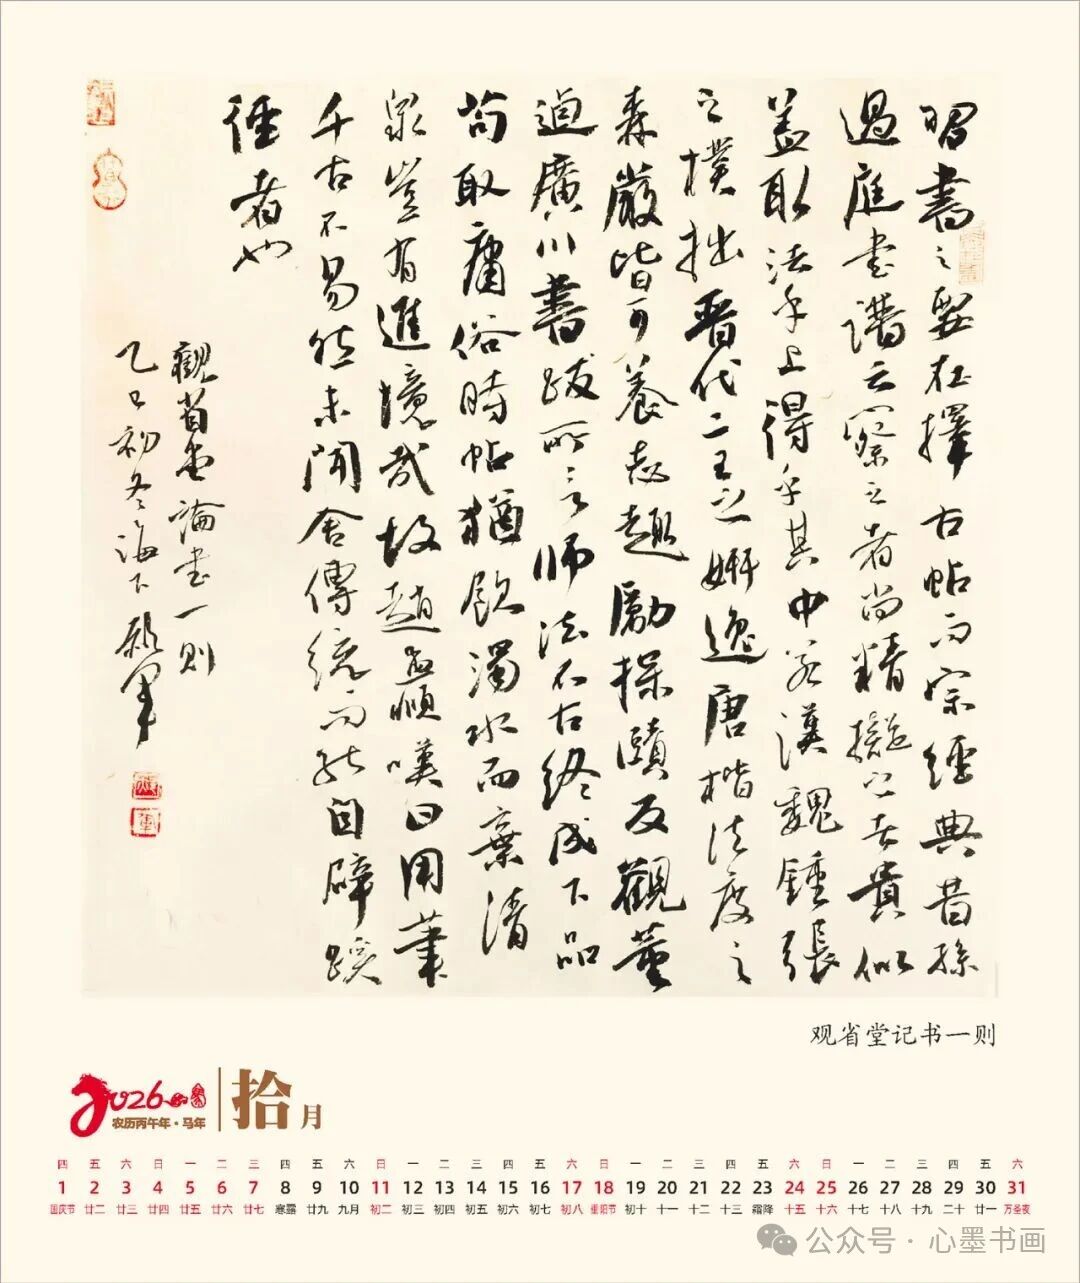 習書之要在擇古帖而宗經典昔孫
過庭書譜云察之者尚精擬之者貴似
蓋取法乎上得乎其中若漢魏鍾張
之樸拙晉代二王之妍逸唐楷法度之
森嚴皆可養志趣勵操賾反觀董
逌廣川書跋所言師法不古終成下品
苟取庸俗時帖猶飲濁水而棄清
泉豈有進境哉故趙孟頫嘆曰用筆
千古不易然未聞舍傳統而能自辟蹊
徑者也
觀省堂論書一則
乙巳初冬海下
观省堂记书一则
2026
农历丙午年·马年
拾月
四 五 六 日 一 二 三 四 五 六 日 一 二 三 四 五 六 日 一 二 三 四 五 六 日 一 二 三 四 五 六
1 2 3 4 5 6 7 8 9 10 11 12 13 14 15 16 17 18 19 20 21 22 23 24 25 26 27 28 29 30 31
国庆节 廿二 廿三 廿四 廿五 廿六 廿七 寒露 廿九 九月 初二 初三 初四 初五 初六 初七 初八 重阳节 初十 十一 十二 十三 霜降 十五 十六 十七 十八 十九 二十 廿一 万圣夜
公众号·心墨书画